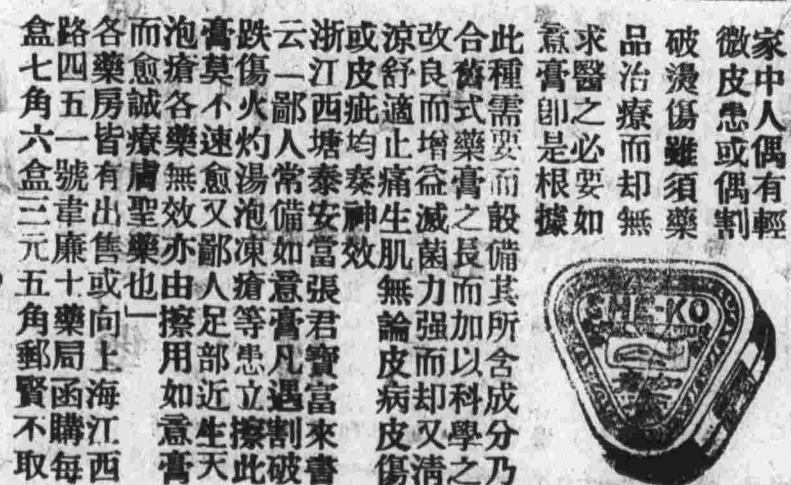 家中人偶有輕
微皮患或偶割
破燙傷雖須藥
品治療而却無
求醫之必要如
意膏卽是根據
此種需要而設備其所含成分乃
合舊式藥膏之長而加以科學之
改良而增益滅菌力强而却又清
涼舒適止痛生肌無論皮病皮傷
或皮疵均奏神效
浙江西塘泰安當張君寶富來書
云「鄙人常備如意膏凡遇割破
跌傷火灼湯泡凍瘡等患立擦此
膏莫不速愈又鄙人足部近生天
泡瘡各藥無效亦由擦用如意膏
而愈誠療膚聖藥也」
各藥房皆有出售或向上海江西
路四五一號韋廉士藥局函購每
盒七角六盒三元五角郵賢不取
HE-KO